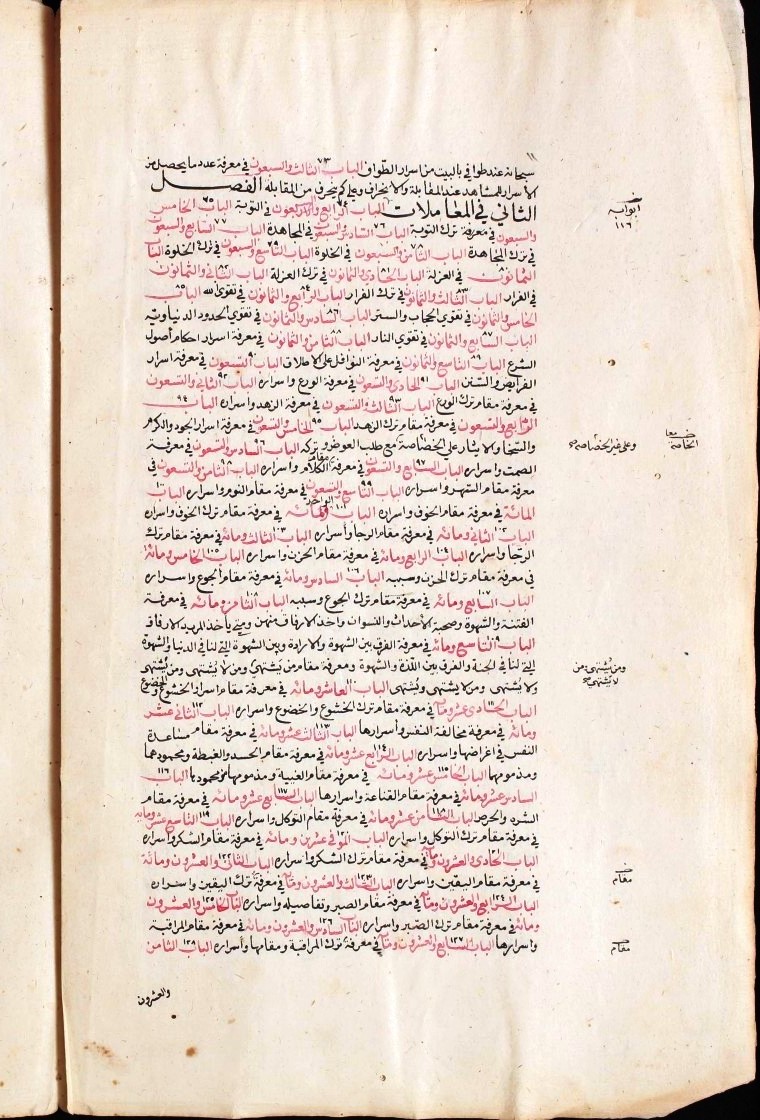 سبحانه عند طوافي بالبيت من اسرار الطواف الباب ٧٣ الثالث والسبعون في معرفة عدد ما يحصل من
الاسرار للمشاهد عند المقابلة والانحراف وعلى كم ينحرف من المقابلة الفصل
الثاني في المعاملات الباب ٧٤ الرابع والسبعون في التوبة الباب ٧٥ الخامس
والسبعون في معرفة ترك التوبة الباب ٧٦ السادس والسبعون في المجاهدة الباب ٧٧ السابع والسبعون
في ترك المجاهدة الباب ٧٨ الثامن والسبعون في الخلوة الباب ٧٩ التاسع والسبعون في ترك الخلوة الباب
الثمانون في العزلة الباب ٨١ الحادي والثمانون في ترك العزلة الباب ٨٢ الثاني والثمانون
في الفرار الباب ٨٣ الثالث والثمانون في ترك الفرار الباب ٨٤ الرابع والثمانون في تقوى الله الباب ٨٥
الخامس والثمانون في تقوي الحجاب والستر الباب ٨٦ السادس والثمانون في تقوي الحدود الدنياوية
الباب ٨٧ السابع والثمانون في تقوي النار الباب ٨٨ الثامن والثمانون في معرفة اسرار احكام أصول
الشرع الباب ٨٩ التاسع والثمانون في معرفة النوافل على الاطلاق الباب ٩٠ التسعون في معرفة اسرار
الفرايض والسنن الباب ٩١ الحادي والتسعون في معرفة الورع واسراره الباب ٩٢ الثاني والتسعون
في معرفة مقام ترك الورع الباب ٩٣ الثالث والتسعون في معرفة الزهد واسراره الباب ٩٤
الرابع والتسعون في معرفة مقام ترك الزهد الباب ٩٥ الخامس والتسعون في معرفة اسرار الجود والكرم
والسخا والايثار على الخصاصة مع طلب العوض وتركه الباب ٩٦ السادس والتسعون في معرفة
الصمت واسراره الباب ٩٧ السابع والتسعون في معرفة مقام الكلام واسراره الباب ٩٨ الثامن والتسعون في
معرفة مقام السهر واسراره الباب ٩٩ التاسع والتسعون في معرفة مقام النوم واسراره الباب ١٠٠
المائة في معرفة مقام الخوف واسراره الباب ١٠١ الواحد ومائة في معرفة مقام ترك الخوف واسراره
الباب ١٠٢ الثاني ومائة في معرفة مقام الرجا وأسراره الباب ١٠٣ الثالث ومائة في معرفة مقام ترك
الرجا واسراره الباب ١٠٤ الرابع ومائة في معرفة مقام الحزن واسراره الباب ١٠٥ الخامس ومائة
في معرفة مقام ترك الحزن وسببه الباب ١٠٦ السادس ومائة في معرفة مقام الجوع واسراره
الباب ١٠٧ السابع ومائة في معرفة مقام ترك الجوع وسببه الباب ١٠٨ الثامن ومائة في معرفة
الفتنة والشهوة وصحبة الأحداث والنسوان واخذ الارفاق منهن ومتى يأخذ المريد الارفاق
الباب ١٠٩ التاسع ومائة في معرفة الفرق بين الشهوة والارادة وبين الشهوة التي لنا في الدنيا والشهوة
التي لنا في الجنة والفرق بين اللذة والشهوة ومعرفة مقام من يشتهي ومن لا يشتهى ومن يشتهى
ولا يشتهى ومن لا يشتهى ويشتهى الباب ١١٠ العاشر ومائة في معرفة مقام اسرار الخشوع والخضوع
الباب ١١١ الحادي عشر ومائة في معرفة مقام ترك الخشوع والخضوع واسراره الباب ١١٢ الثاني عشر
ومائة في معرفة مخالفة النفس وأسرارها الباب ١١٣ الثالث عشر ومائة في معرفة مقام مساعدة
النفس في اغراضها واسراره الباب ١١٤ الرابع عشر ومائة في معرفة مقام الحسد والغبطة ومحمودهما
ومذمومهما الباب ١١٥ الخامس عشر ومائة في معرفة مقام الغيبة ومذمومها من محمودها الباب ١١٦
السادس عشر ومائة في معرفة مقام القناعة واسرارها الباب ١١٧ السابع عشر ومائة في معرفة مقام
الشره والحرص الباب ١١٨ الثامن عشر ومائة في معرفة مقام التوكل واسراره الباب ١١٩ التاسع عشر ومائة
في معرفة مقام ترك التوكل واسراره الباب ١٢٠ الموفي عشرين ومائة في معرفة مقام الشكر واسراره
الباب ١٢١ الحادي والعشرون ومائة في معرفة مقام ترك الشكر واسراره الباب ١٢٢ الثاني والعشرون ومائة
في معرفة مقام اليقين واسراره الباب ١٢٣ الثالث والعشرون ومائة في معرفة ترك اليقين واسراره
الباب ١٢٤ الرابع والعشرون ومائة في معرفة مقام الصبر وتفاصيله واسراره الباب ١٢٥ الخامس والعشرون
ومائة في معرفة مقام ترك الصبر واسراره الباب ١٢٦ السادس والعشرون ومائة في معرفة مقام المراقبة
واسرارها الباب ١٢٧ السابع والعشرون ومائة في معرفة ترك المراقبة ومقامها وأسراره الباب ١٢٨ الثامن
والعشرون
ابوابه
١١٦
وعلى غير الخصاصة صح
الخاصة
ومن يشتهى ومن
لا يشتهى صح
مقام
مقام